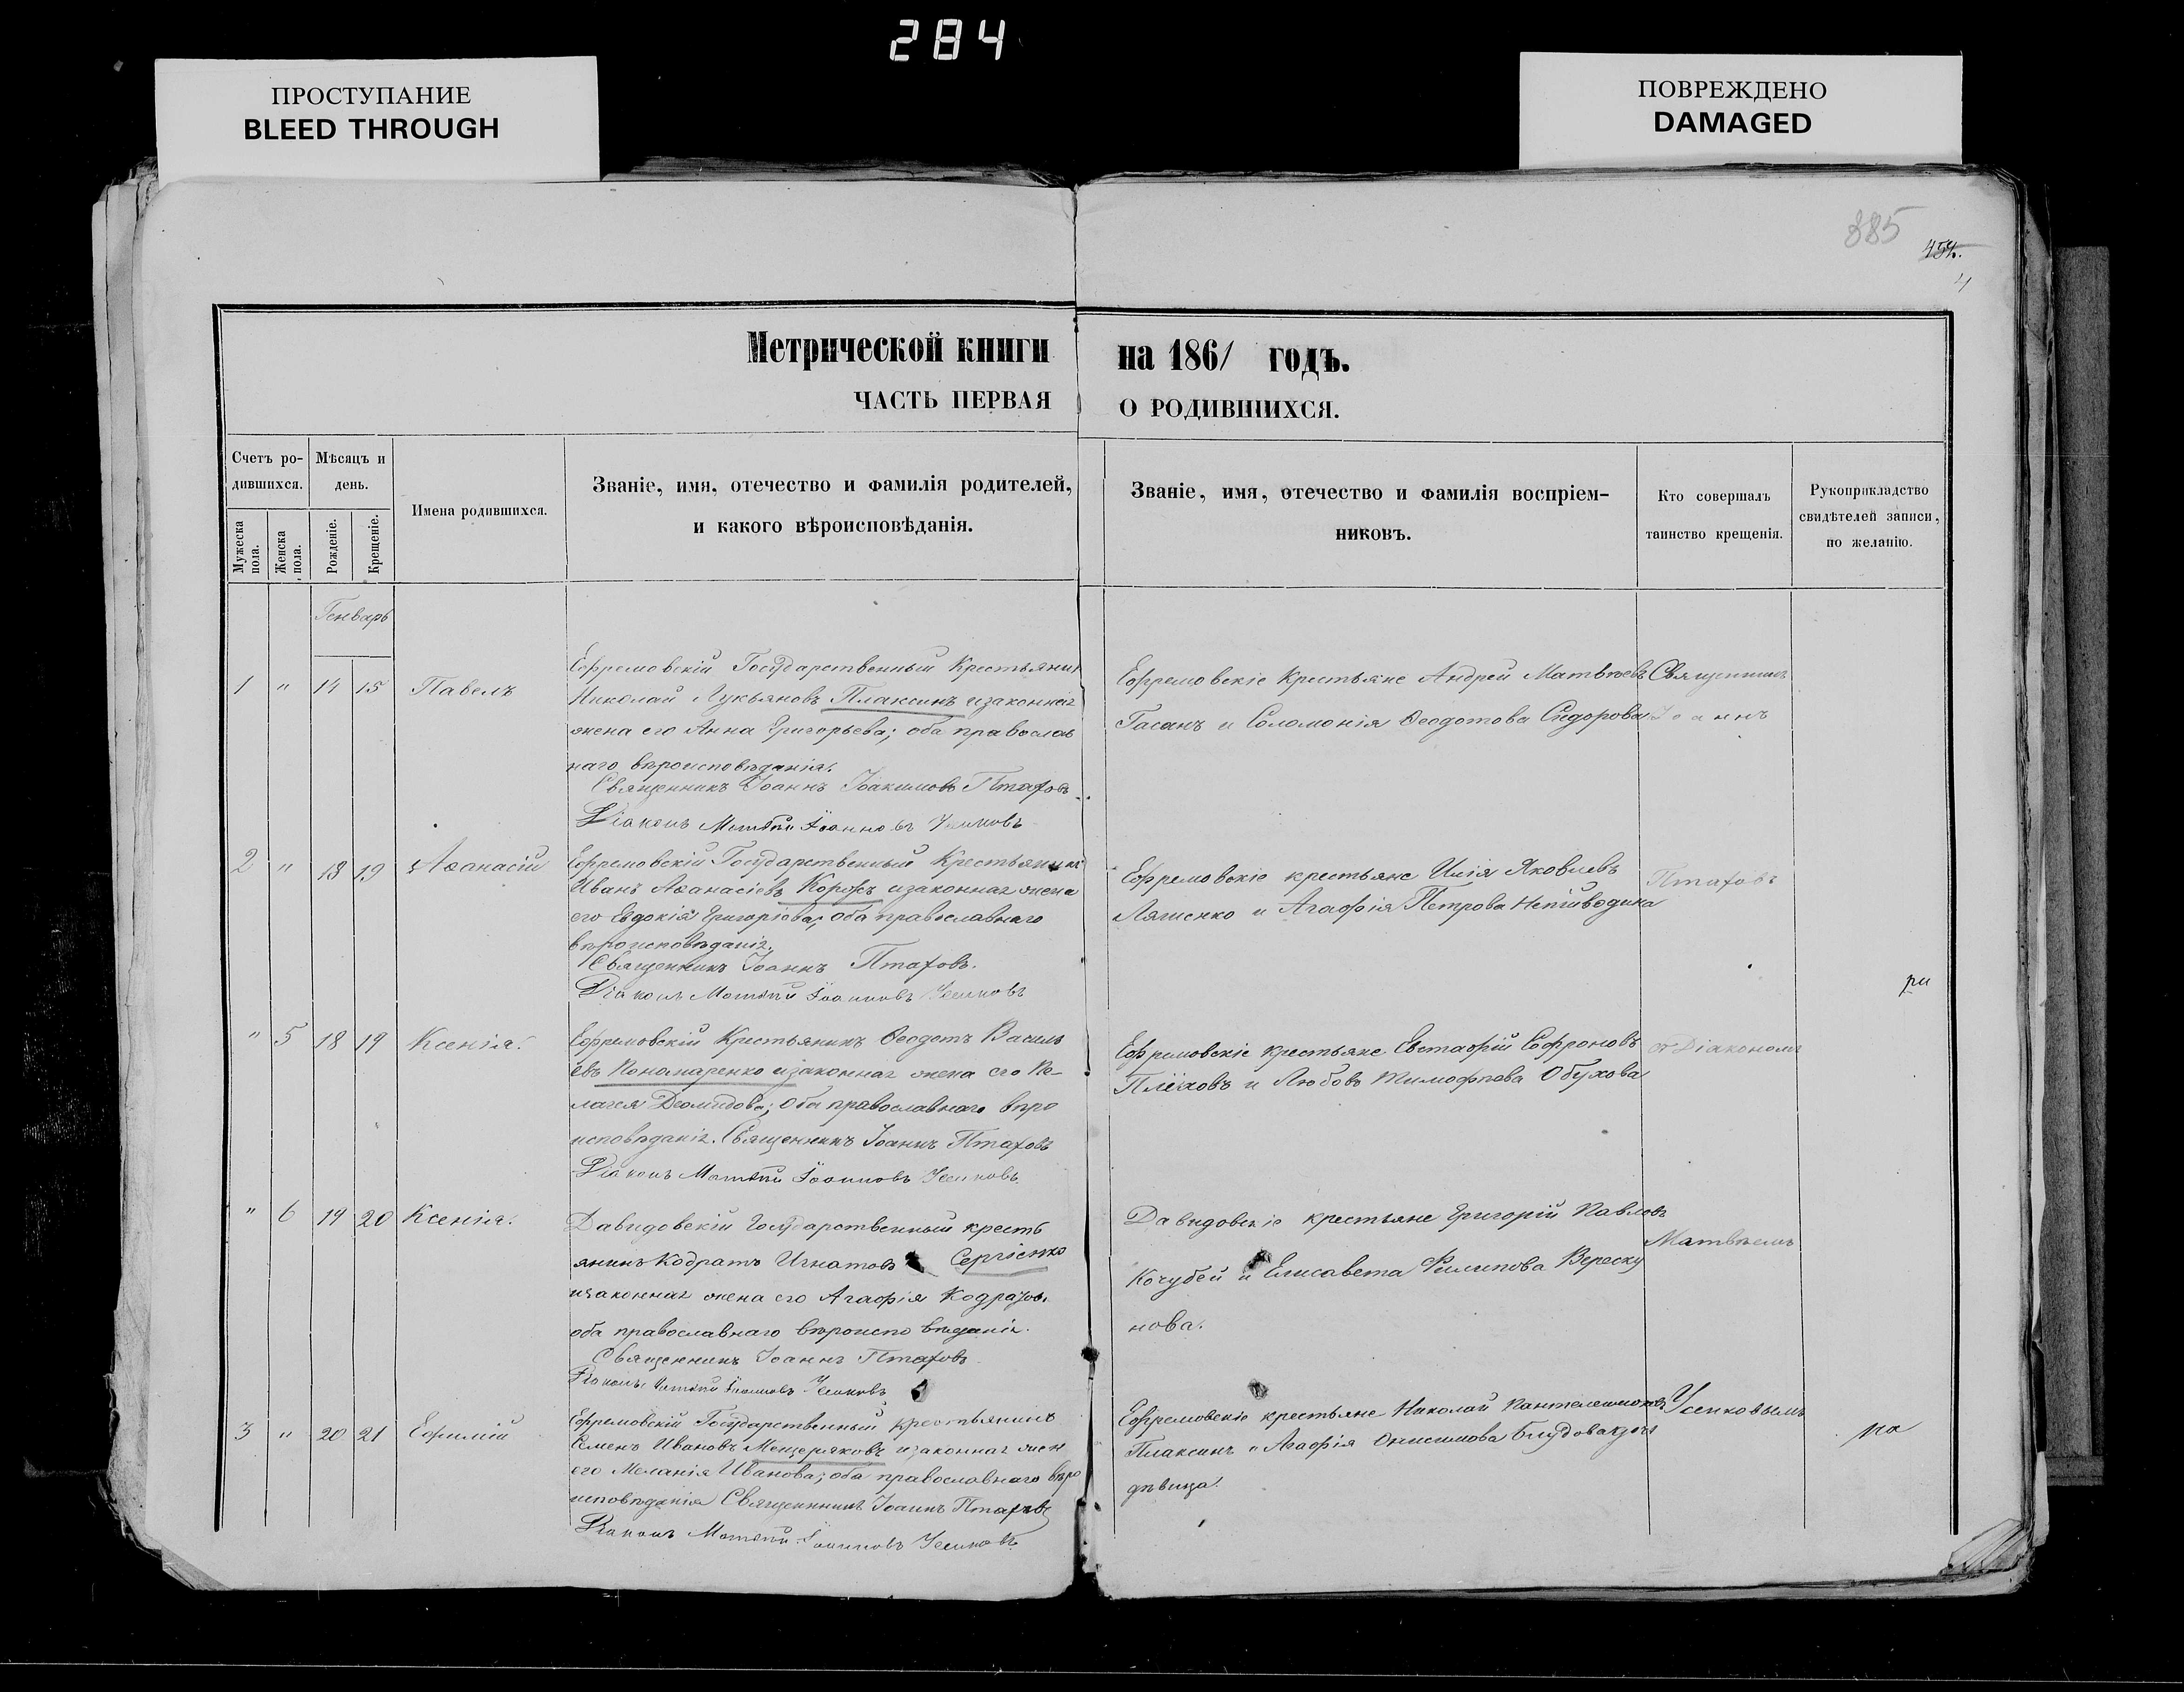 284
ПРОСТУПАНИЕ
BLEED THROUGH
ПОВРЕЖДЕНО
DAMAGED
885
454.
4
Метрической книги на 1861 годъ.
ЧАСТЬ ПЕРВАЯ О РОДИВШИХСЯ.
Счетъ ро-
дившихся.
Мужеска пола.
Женска пола.
Мѣсяцъ и
день.
Рожденіе.
Крещеніе.
Имена родившихся.
Званіе, имя, отечество и фамилія родителей,
и какого вѣроисповѣданія.
Званіе, имя, отечество и фамилія воспріем-
никовъ.
Кто совершалъ
таинство крещенія.
Рукоприкладство
свидѣтелей записи,
по желанію.
Генварь
1 " 14 15 Павелъ
Ефремовскій Государственный Крестьянинъ
Николай Лукьяновъ Плаксинъ изаконная
жена его Анна Григорьева; оба православ
наго вѣроисповѣданія.
Священникъ Іоаннъ Іоакимовъ Птаховъ
Діаконъ Матѳій Іоанновъ Усиковъ
Ефремовскіе Крестьяне Андрей Матвѣевъ
Гасанъ и Соломонія Ѳеодотова Сидорова
Священникъ
Іоаннъ
2 " 18 19 Аѳанасій
Ефремовскій Государственный Крестьянинъ
Иванъ Аѳанасіевъ Коржъ изаконная жена
его Евдокія Григоріева; оба православнаго
вѣроисповѣданія.
Священникъ Іоаннъ Птаховъ.
Діаконъ Матѳій Іоанновъ Усиковъ
Ефремовскіе крестьяне Илія Яковлевъ
Ляшенко и Агафія Петрова Непійводина
Птаховъ
ри
" 5 18 19 Ксенія.
Ефремовскій Крестьянинъ Ѳеодотъ Василь
евъ Пономаренко изаконная жена его Пе-
лагея Деомидова; оба православнаго вѣро
исповѣданія. Священникъ Іоаннъ Птаховъ
Діаконъ Матѳій Іоанновъ Усиковъ.
Ефремовскіе крестьяне Евстафій Софроновъ
Плеховъ и Любовь Тимофѣева Обухова
съ Діакономъ
" 6 19 20 Ксенія.
Давидовскій Государственный кресть
янинъ Кодратъ Игнатовъ Сергіенко
изаконная жена его Агафія Кодратов.
оба православнаго вѣроисповѣданія.
Священникъ Іоаннъ Птаховъ
Діаконъ Матѳій Іоанновъ Усиковъ
Давидовскіе крестьяне Григорій Павловъ
Кочубей и Елисавета Филипова Вереску
нова.
Матвѣемъ
3 " 20 21 Ефимій
Ефремовскій Государственный крестьянинъ
Семенъ Ивановъ Мещеряковъ изаконная жен
его Меланія Иванова; оба православнаго вѣро
исповѣданія Священникъ Іоаннъ Птаховъ
Діаконъ Матѳій Іоанновъ Усиковъ
Ефремовскіе крестьяне Николай Пантелеимоновъ
Плаксинъ и Агафія Онисимова
дѣвица.
Усенковымъ
ра